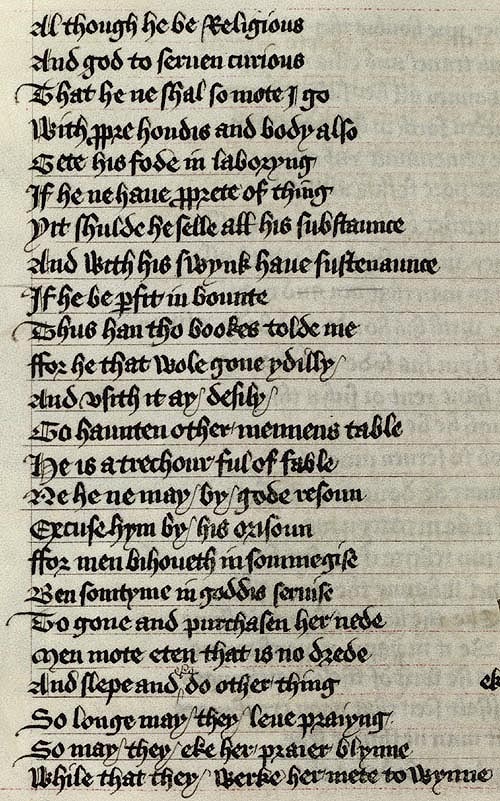 Al though he be Religious
And god to seruen curious
That he ne shal so mote I go
With ꝓpre hondis and body also
Gete his fode in laboryng
If he ne haue ꝓprete of thing
Yit shulde he selle all his substaunce
And with his swynk haue sustenaunce
If he be ꝑfit in bounte
Thus han tho bookes tolde me
ffor he that wole gone ydilly/
And vsith it ay/ desily/
To haunten other mennens table
He is a trechour ful of fable
Ne he ne may/ by/ gode resoun
Excuse hym by/ his orisoun
ffor men bihoueth in somme gise
Ben somtyme in goddis seruise
To gone and purchasen her nede
Men mote eten that is no drede
And slepe and eke do other thing ek
So longe may/ they/ leue praiyng
So may/ they/ eke her praier blynne
While that they/ werke her mete to wynne